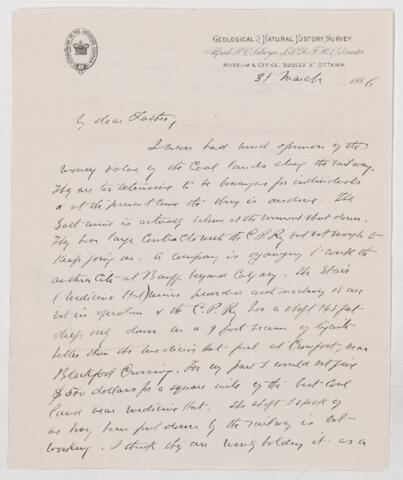 GEOLOGICAL & NATURAL HISTORY SURVEY
Alfred R. C. Selwyn, L.L.D., F.R.S., Director
MUSEUM & OFFICE, SUSSEX ST OTTAWA.
31 March 1886
My dear
I never had much opinion of the
money value of the Coal lands along the railway.
They are too extensive to be for individuals
& at the present time the thing is overdone. The
Galt mine is actually at the moment shut down.
They have large Contracts with the C.P.Ry but not enough to
keep going on. A company is organizing to work the
anthracite at Banff beyond Calgary. The
(Medicine Hat) mines and machinery are
not in operation & the C.P.Ry has a shaft feet
deep down on a 9 foot seam of lignite
better than the medicine Hat fuel at Crowfoot, near
Blackfoot Crossing. For my part I would not give
$500 dollars for a square mile of the best Coal
land near medicine Hat. The shaft I speak of
as having been put down by the railway is not
working. I think they are merely holding it as a